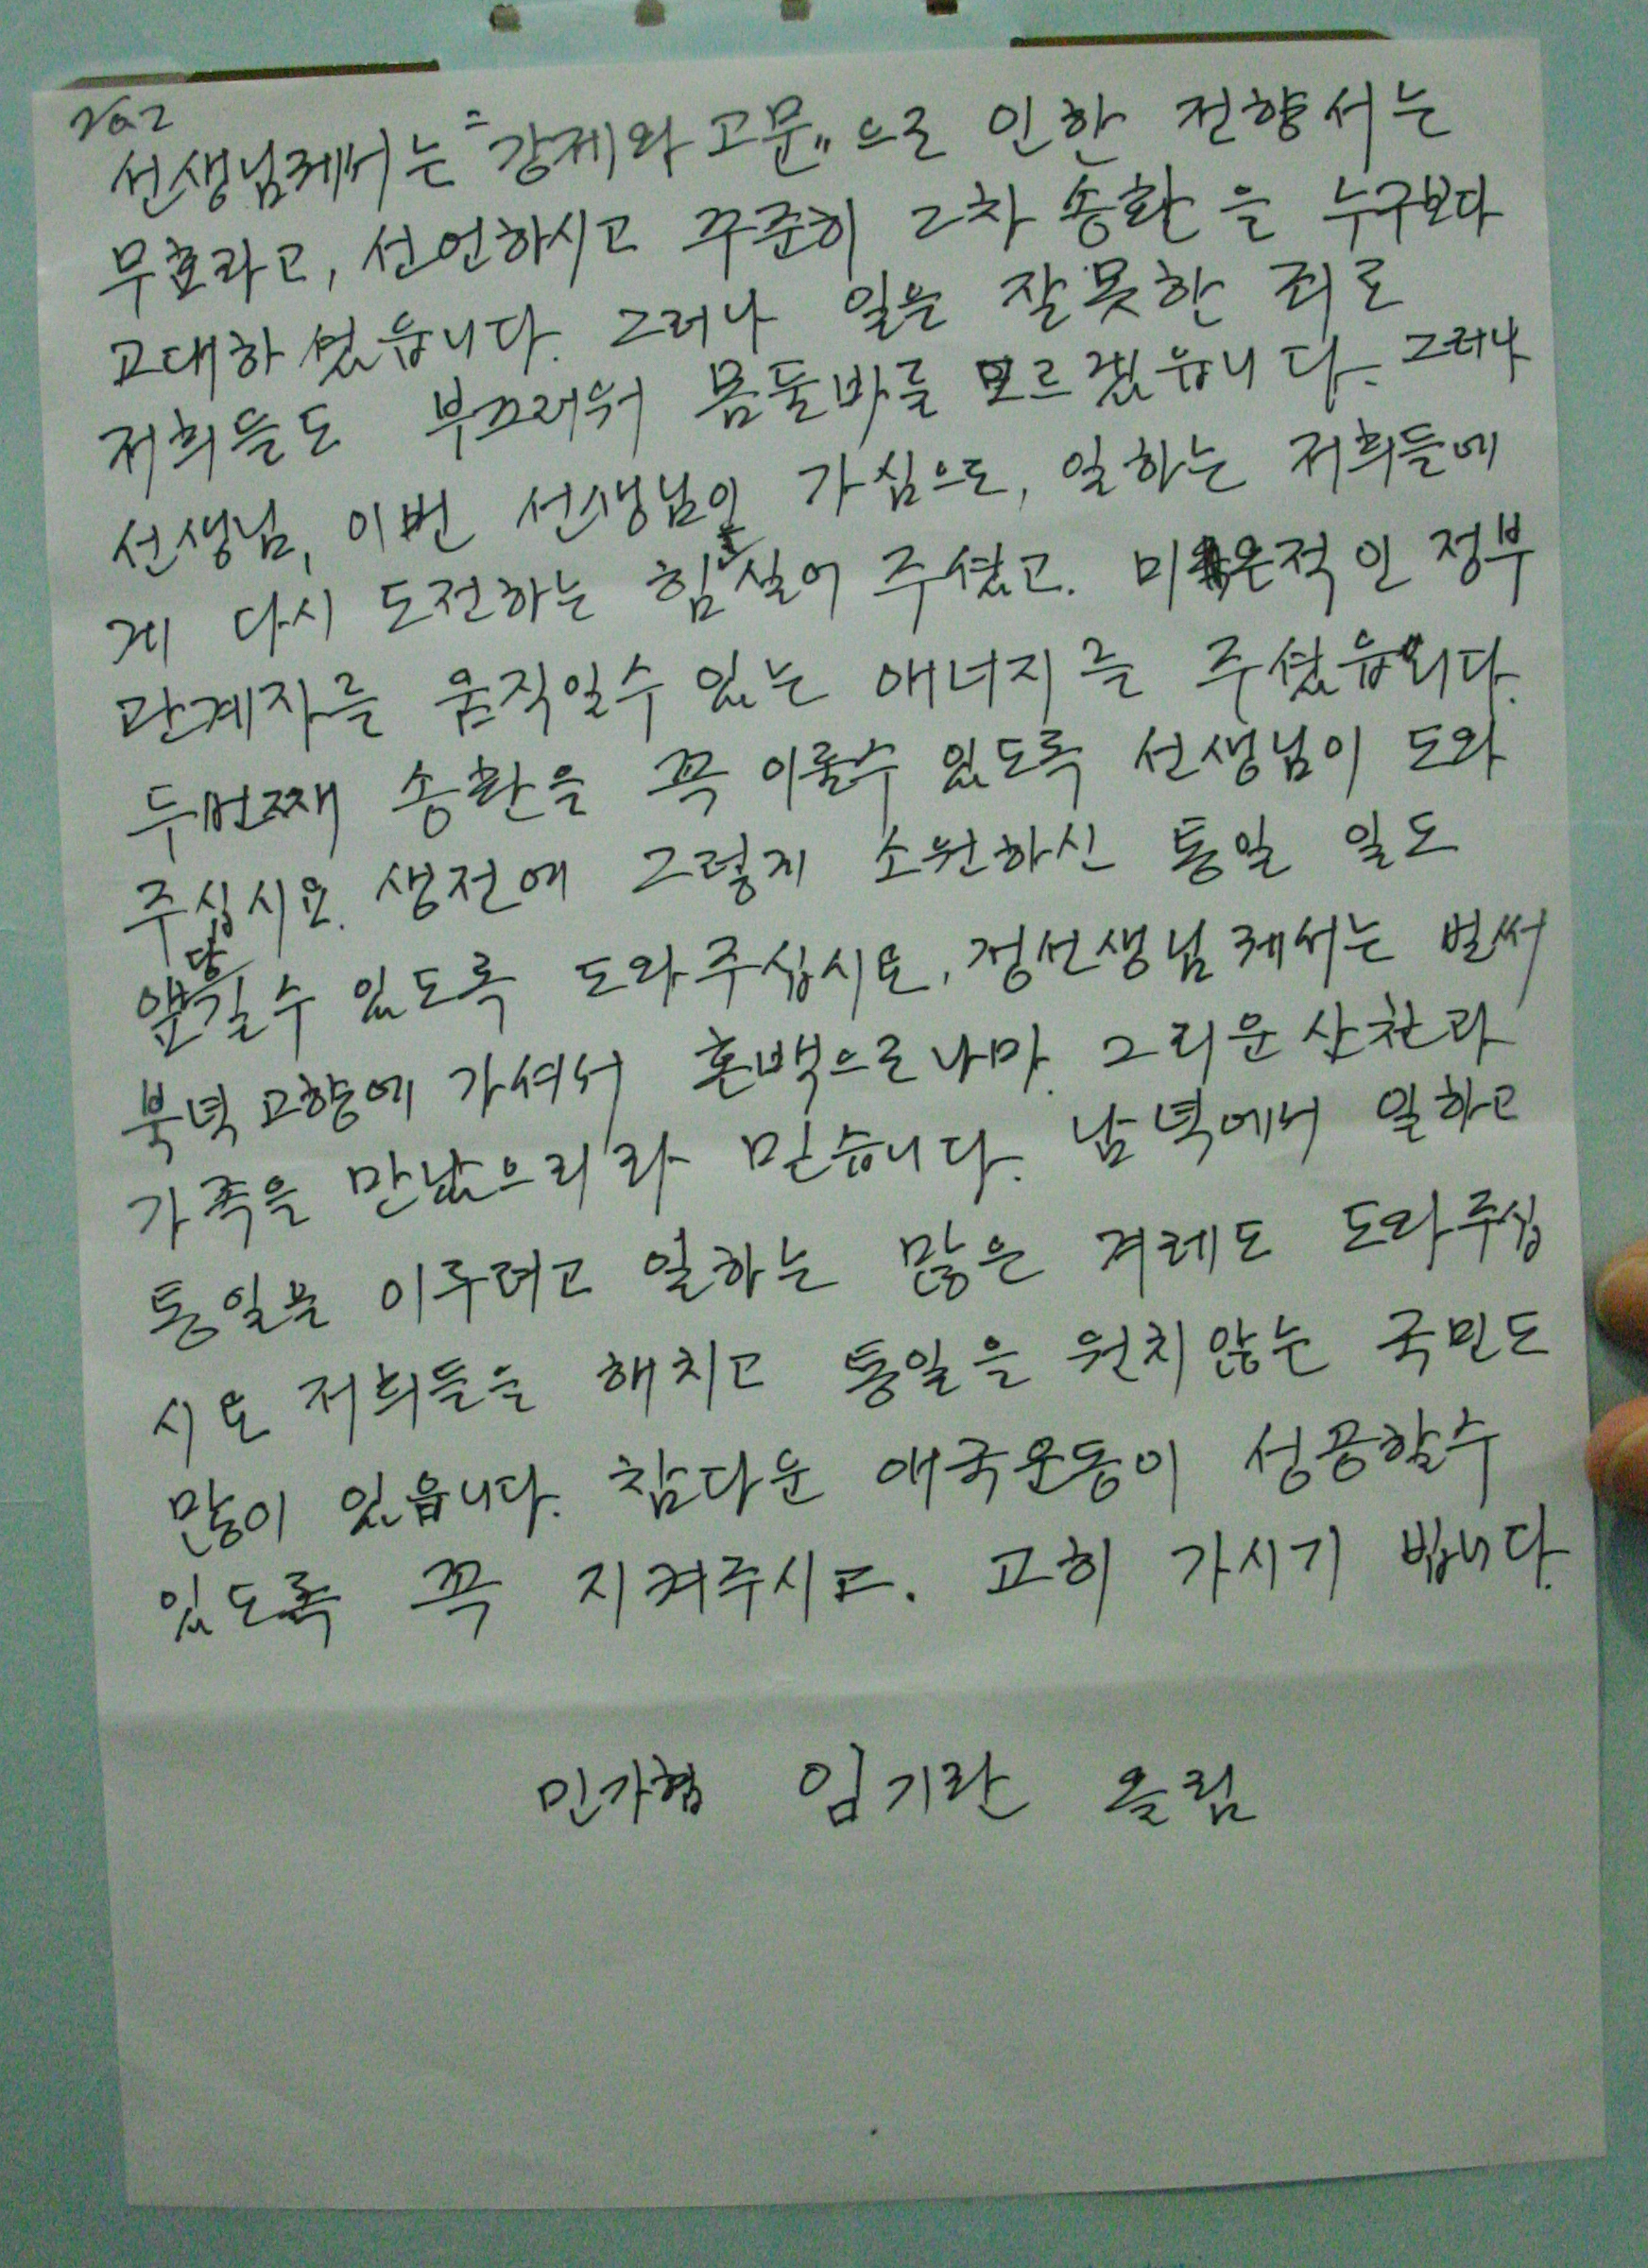 No2
선생님께서는 "강제와 고문"으로 인한 전향서는
무효라고, 선언하시고 꾸준히 2차 송환을 누구보다
고대하셨읍니다. 그러나 일을 잘못한 죄로
저희들도 부끄러워 몸둘바를 모르겠읍니다. 그러나
선생님, 이번 선생님이 가심으로, 일하는 저희들에
게 다시 도전하는 힘을 실어 주셨고. 미온적인 정부
관계자를 움직일수 있는 애너지를 주셨읍니다.
두번째 송환을 꼭 이룰수 있도록 선생님이 도와
주십시요. 생전에 그렇게 소원하신 통일 일도
앞당길수 있도록 도와주십시요. 정선생님께서는 벌써
북녘 고향에 가셔서 혼백으로나마 그리운 산천과
가족을 만났으리라 믿습니다. 남녘에서 일하고
통일을 이루려고 일하는 많은 겨레도 도와주십
시요 저희들을 해치고 통일을 원치않는 국민도
많이 있읍니다. 참다운 애국운동이 성공할수
있도록 꼭 지켜주시고. 고히 가시기 빕니다.
민가협 임기란 올림